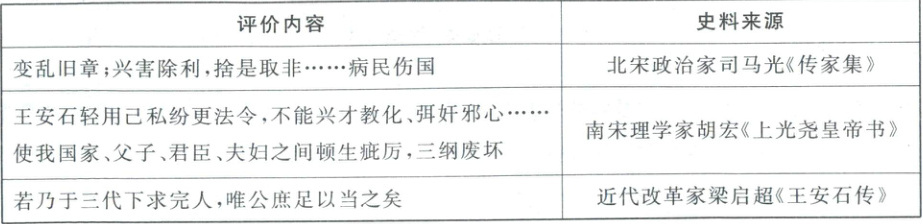 评价内容 史料来源
变乱旧章;兴害除利,捨是取非……病民伤国 北宋政治家司马光《传家集》
王安石轻用己私纷更法令,不能兴才教化、弭奸邪心……
使我国家、父子、君臣、夫妇之间顿生疵厉,三纲废坏 南宋理学家胡宏《上光尧皇帝书》
若乃于三代下求完人,唯公庶足以当之矣 近代改革家梁启超《王安石传》